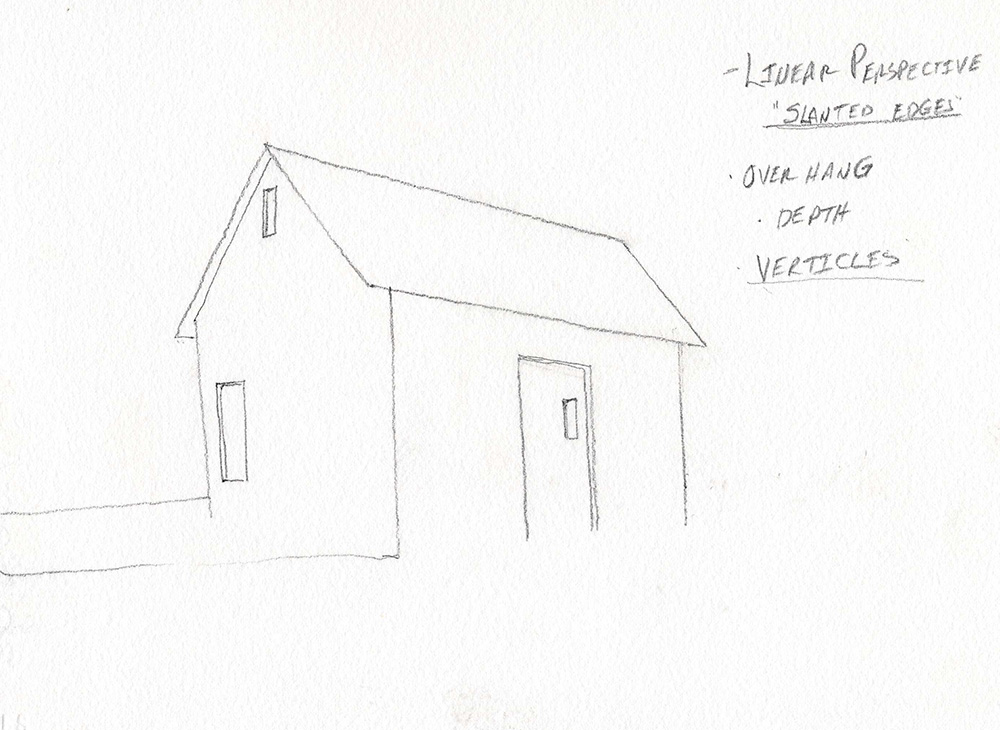 - LINEAR PERSPECTIVE
"SLANTED EDGES"
· OVER HANG
· DEPTH
· VERTICLES